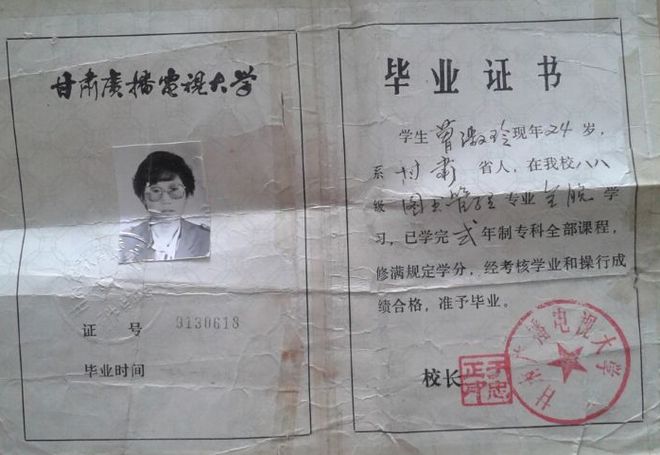 甘肃广播電視大学
证 号 9130618
毕业时间
毕业证书
学生 曾淑玲现年24岁，
系 甘肃 省人，在我校八八
级 图书管理 专业 全脱 学
习，已学完 弍 年制专科全部课程，
修满规定学分，经考核学业和操行成
绩合格，准予毕业。
校长
甘肃广播电视大学